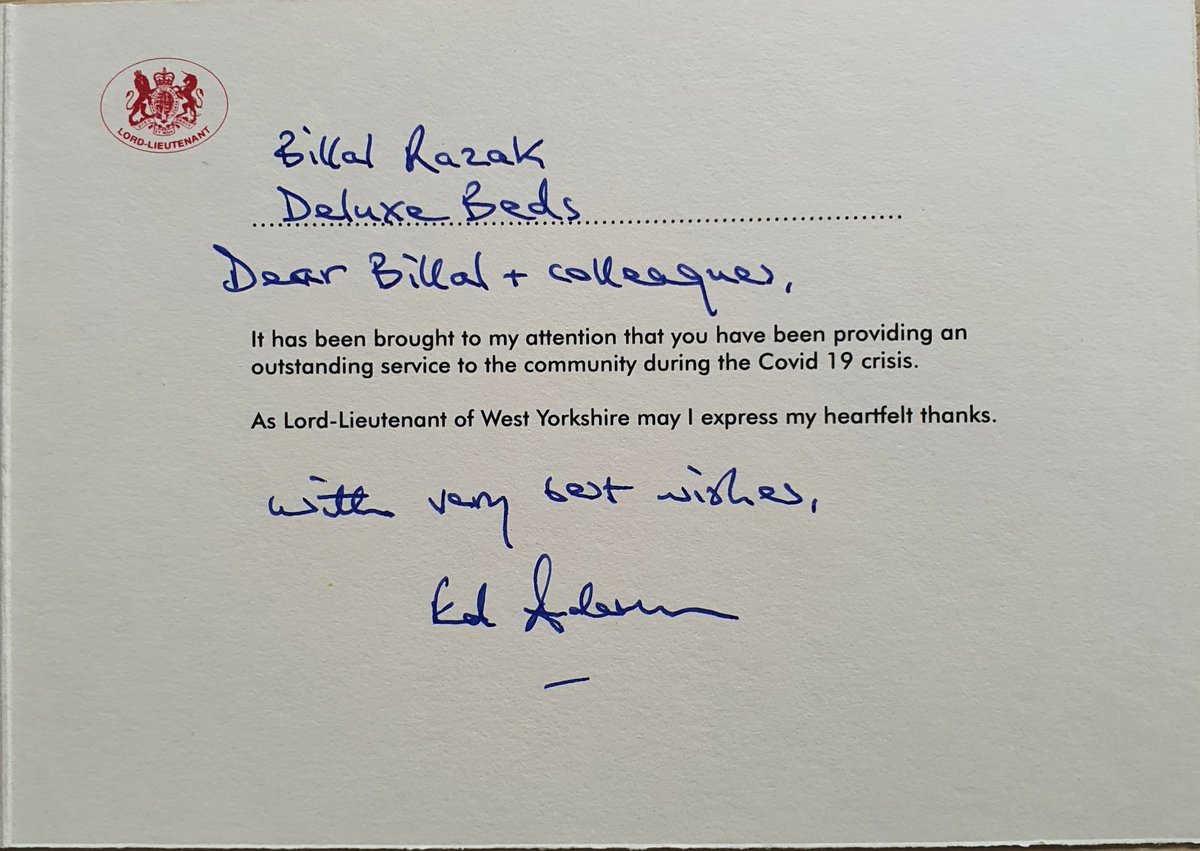 LORD-LIEUTENANT
Billal Razak
Deluxe Beds
Dear Billal + colleagues,
It has been brought to my attention that you have been providing an
outstanding service to the community during the Covid 19 crisis.
As Lord-Lieutenant of West Yorkshire may I express my heartfelt thanks.
with very best wishes,
Ed Anderson